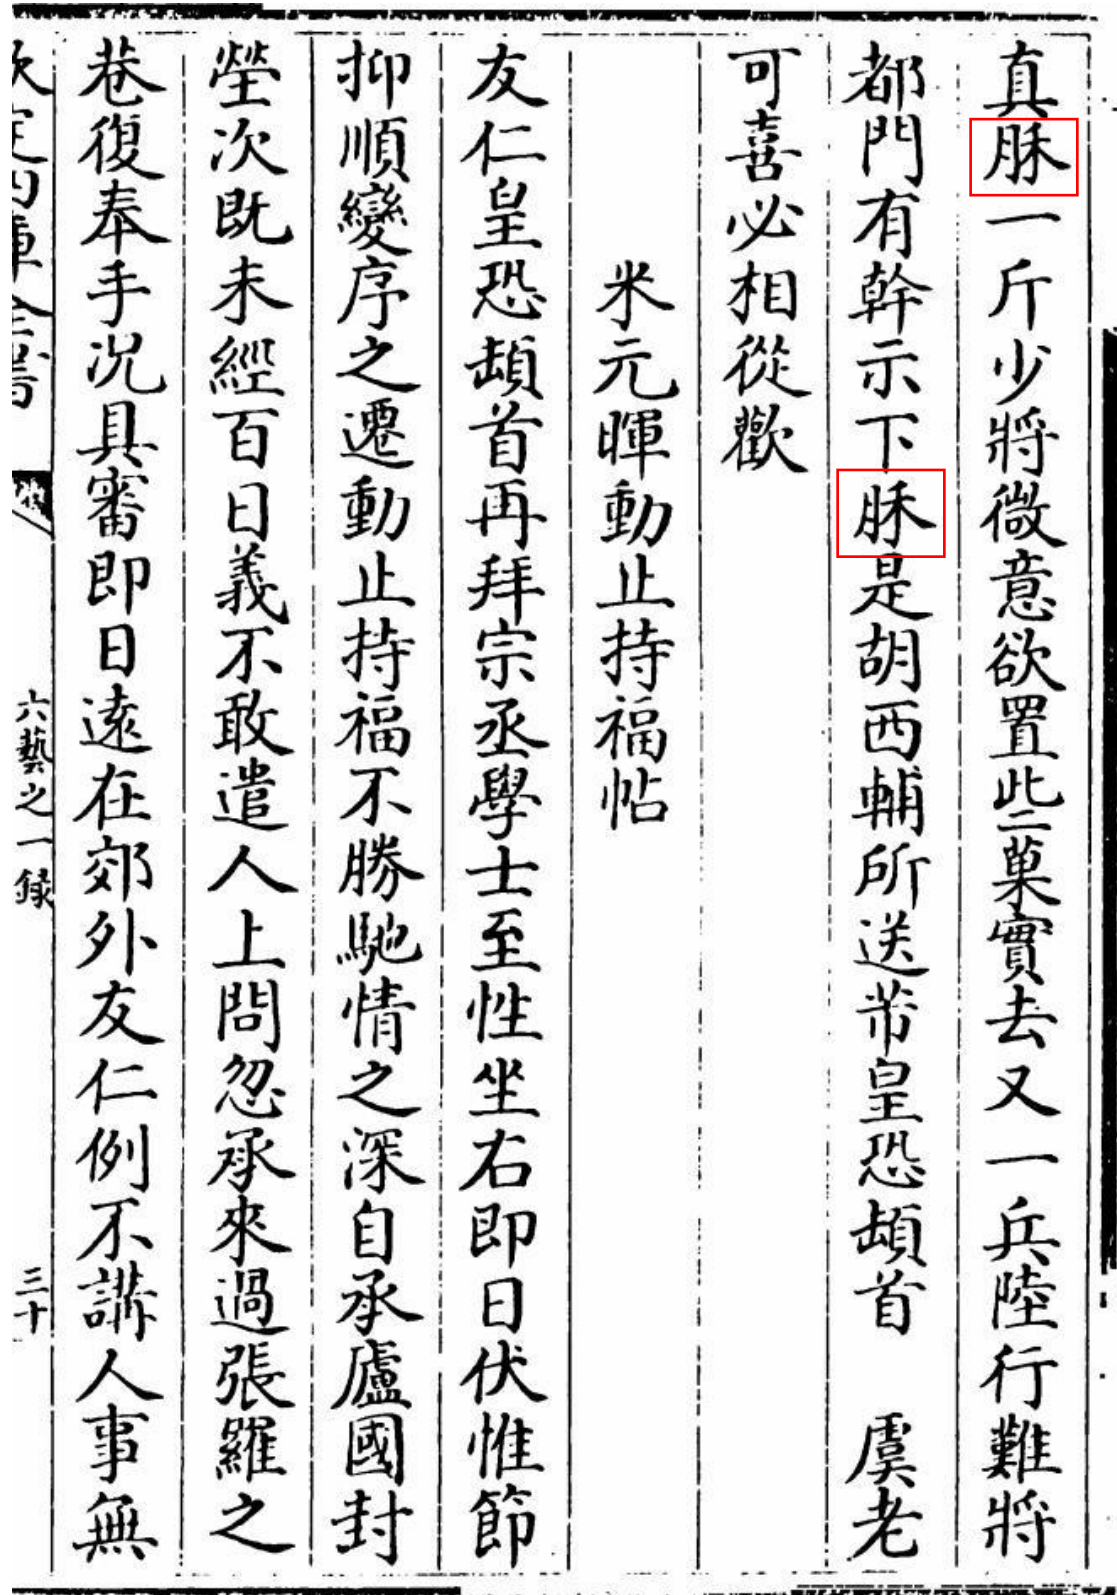 真䏜一斤少將微意欲置此二菓實去又一兵陸行難將
都門有幹示下䏜是胡西輔所送芾皇恐頓首　虞老
可喜必相從歡
米元暉動止持福帖
友仁皇恐頓首再拜宗丞學士至性坐右即日伏惟節
抑順變序之遷動止持福不勝馳情之深自承廬國封
塋次既未經百日義不敢遣人上問忽承來過張羅之
巷復奉手況具審即日遠在郊外友仁例不講人事無
欽定四庫全書
六藝之一録
三十